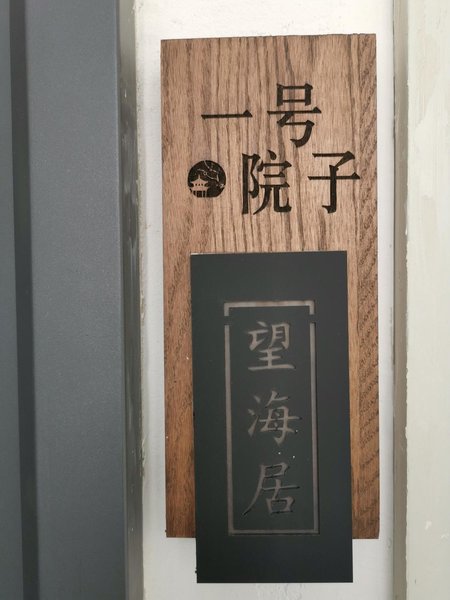 一号
院子
望海居